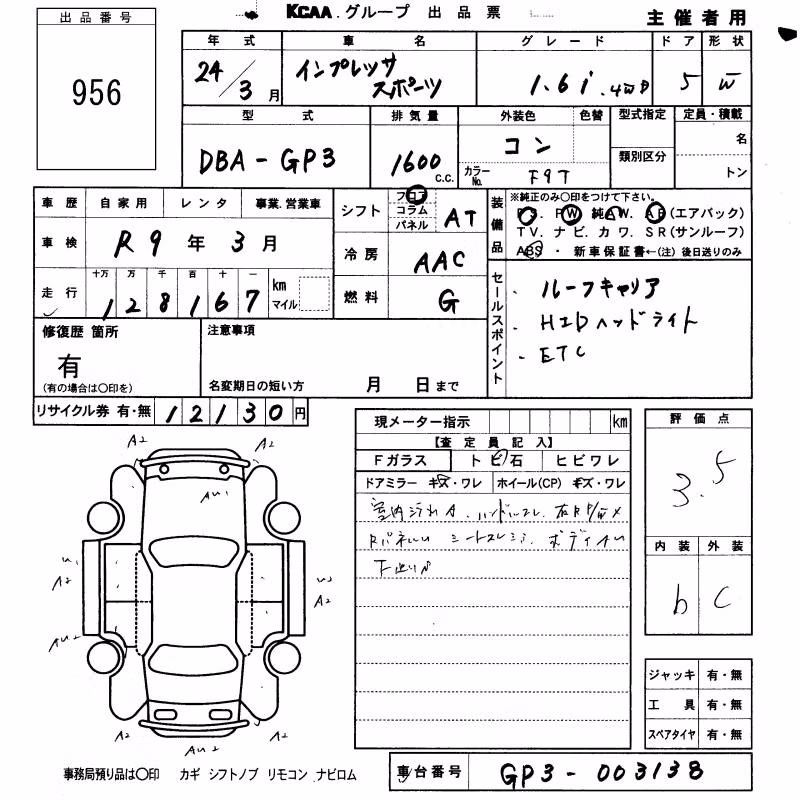 出品番号
956
KCAA グループ 出品票
主催者用
年式 車名 グレード ドア 形状
24/3月 インプレッサ スポーツ 1.6i .4WD 5 W
型式 排気量 外装色 色替 型式指定 定員・積載
DBA-GP3 1600 C.C. コン カラーNo. F9T 類別区分 名 トン
車歴 自家用 レンタ 事業.営業車
車検 R9年3月
走行 十万 万 千 百 十 一 km マイル
128167
シフト フロア コラム パネル AT
冷房 AAC
燃料 G
装備品
※純正のみ○印をつけて下さい。
PS. PW 純AW. AB(エアバック)
TV. ナビ. カワ. SR(サンルーフ)
ABS ・ 新車保証書←(注)後日送りのみ
セールスポイント
・ルーフキャリア
・HIDヘッドライト
・ETC
修復歴 箇所
有
(有の場合は○印を)
注意事項
名変期日の短い方 月 日まで
リサイクル券 有・無 12130円
現メーター指示 km
【査定員記入】
Fガラス トビ石 ヒビワレ
ドアミラー キズ・ワレ ホイール(CP) キズ・ワレ
室内汚れA. ハンドルスレ.
シートスレ ボディAU
評価点
3.5
内装 外装
b C
A2 A2
AU1
A2
A2
AU2
A2 A2
AU2
ジャッキ 有・無
工具 有・無
スペアタイヤ 有・無
事務局預り品は○印 カギ シフトノブ リモコン ナビロム
車台番号 GP3-003138